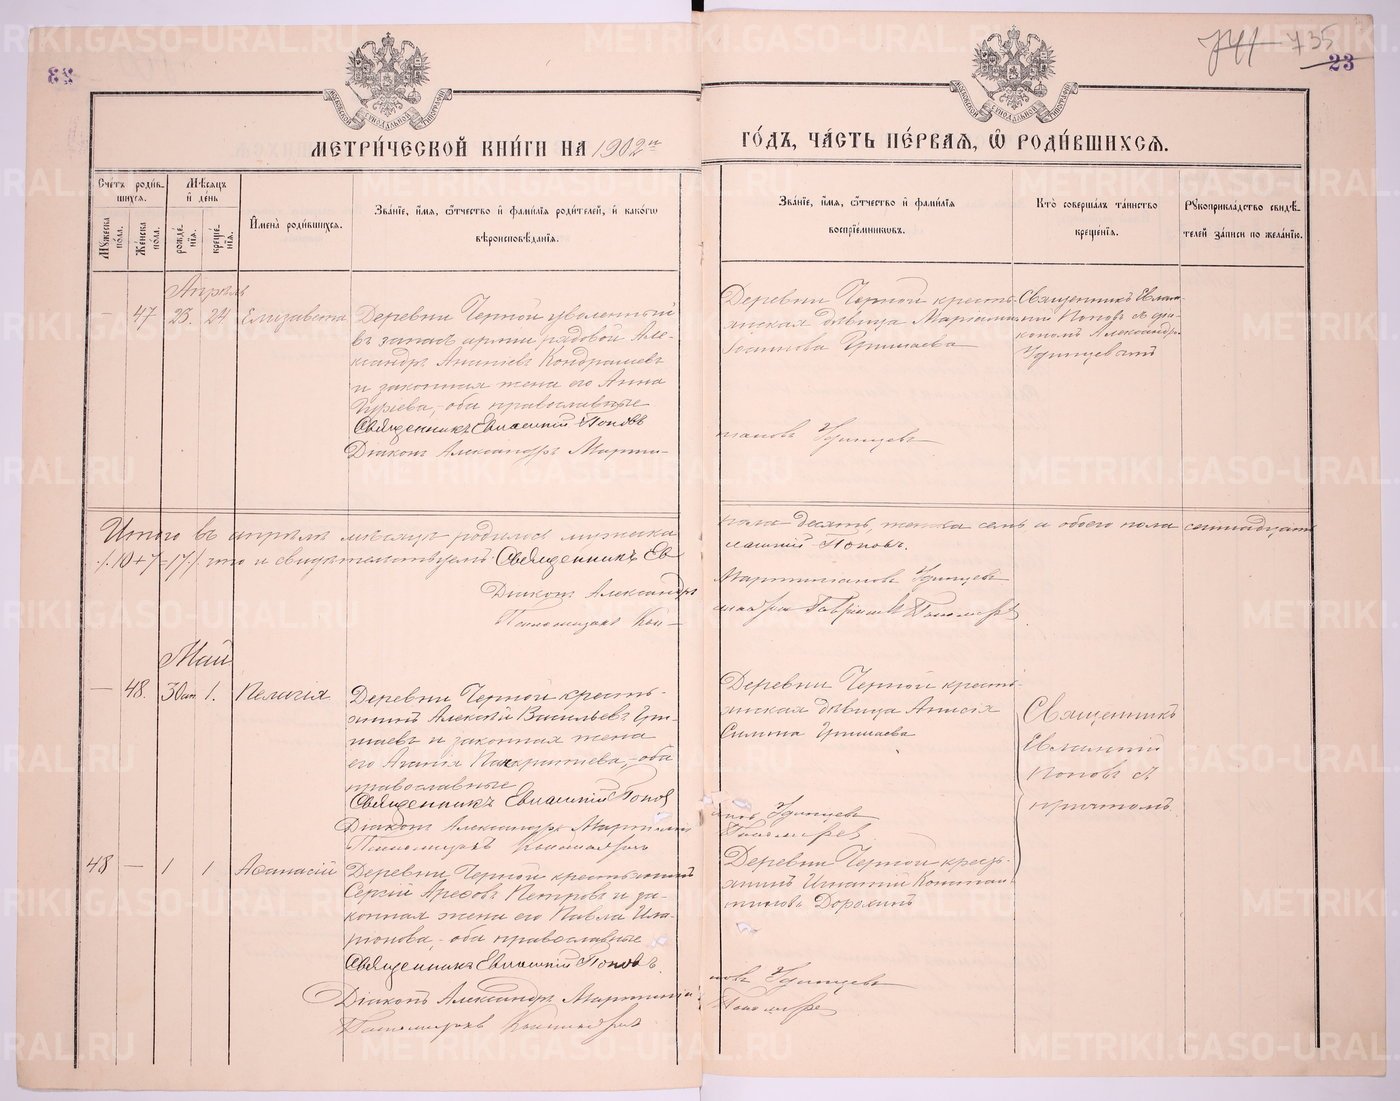 741 735
23
МЕТРИЧЕСКОЙ КНИГИ НА 1902й
ГОДЪ, ЧАСТЬ ПЕРВАЯ, Ѿ РОДИВШИХСЯ.
Счетъ родив-
шихся.
Мужеска пола.
Женска пола.
Мѣсяцъ
и день
рожде-
нія.
креще-
нія.
Имена родившихся.
Званіе, имя, ѻтчество и фамилія родителей, и какогѡ
вѣроисповѣданія.
Званіе, имя, ѻтчество и фамилія
воспріемниковъ.
Кто совершалъ таинство
крещенія.
Рукоприкладство свидѣ-
телей записи по желанію.
Апрѣль
— 47 23. 24 Елизавета
Деревни Черной уволенный
въ запасъ арміи рядовой Але-
ксандръ Ананіевъ Кондрашевъ
и законная жена его Анна
Гуріева, оба православные
Священникъ Евлампій Поповъ
Діаконъ Александръ Марти-
Деревни Черной кресть-
янская дѣвица
Іоаннова Гришаева
Священникъ Евлам-
пій Поповъ съ діа-
кономъ Александр.
Удинцевымъ
ніановъ Удинцевъ
Итого въ апрѣлѣ мѣсяцѣ родилось мужеска
пола десять, женска семь а обоего пола семнадцать
/10+7=17/ что и свидѣтельствуемъ Священникъ Ев
лампій Поповъ.
Діаконъ Александръ
Мартиніановъ Удинцевъ
Псаломщикъ
Май
— 48. 30 ап 1. Пелагія
Деревни Черной кресть-
янинъ Алексѣй Васильевъ Гри-
шаевъ и законная жена
его Агапія, оба
православные
Священникъ Евлампій Поповъ
Діаконъ Александръ Мартині
Псаломщикъ
Деревни Черной кресть-
янская дѣвица Анисія
Силина Гришаева
Священникъ
Евлампій
Поповъ съ
причтомъ.
Удинцевъ
48 — 1 1 Аѳанасій
Деревни Черной крестьянинъ
Сергій Арефовъ Петровъ и за-
конная жена его Павла Ила-
ріонова, оба православные
Священникъ Евлампій Поповъ.
Діаконъ Александръ Мартині
Псаломщикъ
Деревни Черной кресть-
янинъ Игнатій Констан-
тиновъ Дорохинъ
новъ Удинцевъ
METRIKI.GASO-URAL.RU